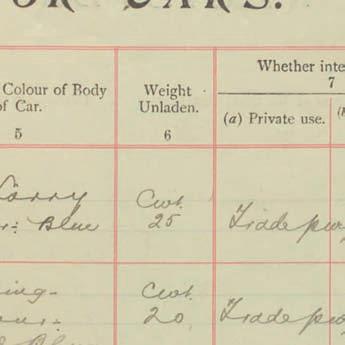 OR CARS.
Colour of Body
of Car.
5
Weight
Unladen.
6
Whether inte
7
(a) Private use.
Lorry
Blue
Cwt.
25
Trade pur
ing-
our:-
Cwt.
20
Trade pur
Blue